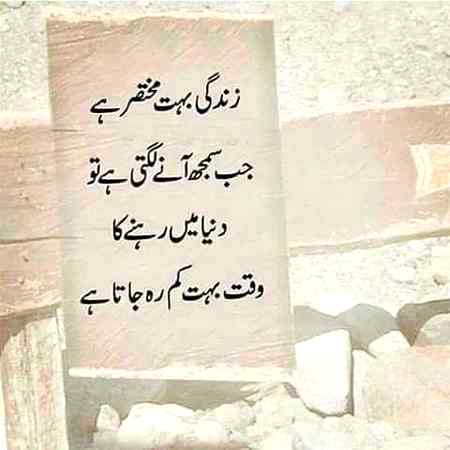 زندگی بہت مختصر ہے
جب سمجھ آنے لگتی ہے تو
دنیا میں رہنے کا
وقت بہت کم رہ جاتا ہے